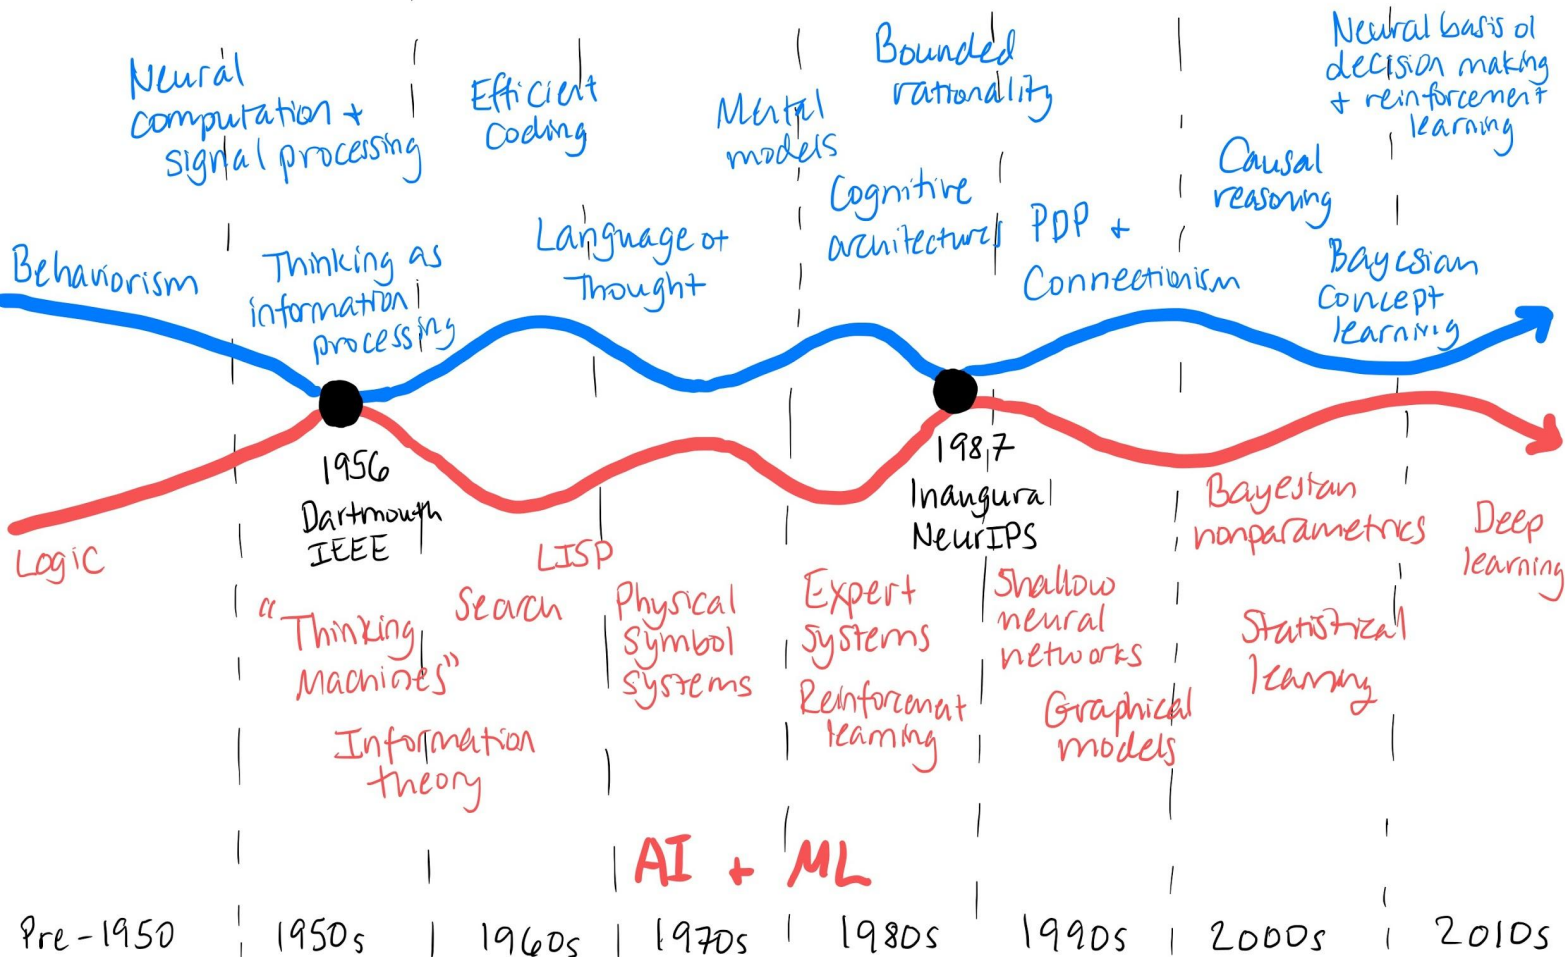 Neural
computation +
signal processing
Efficient
Coding
Mental
models
Bounded
rationality
Neural basis of
decision making
+ reinforcement
learning
Causal
reasoning
Behaviorism
Thinking as
information
processing
Language of
Thought
Cognitive
architectures
PDP +
Connectionism
Bayesian
Concept
learning
1956
Dartmouth
IEEE
1987
Inaugural
NeurIPS
Logic
"Thinking
Machines"
Information
theory
Search
LISP
Physical
Symbol
Systems
Expert
Systems
Reinforcement
learning
Shallow
neural
networks
Graphical
models
Bayesian
nonparametrics
Statistical
learning
Deep
learning
AI + ML
Pre-1950
1950s
1960s
1970s
1980s
1990s
2000s
2010s